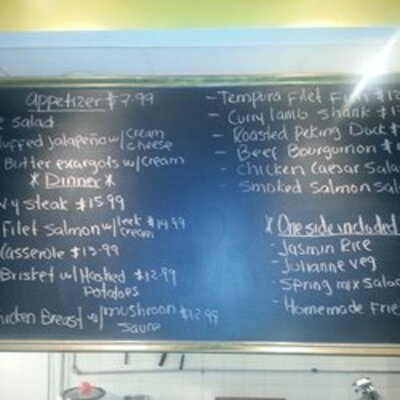 Appetizer $7.99
salad
uffed jalapeño w/ cream cheese
Butter exargots w/ cream
* Dinner *
N.Y steak $15.99
Filet Salmon w/ leek cream $14.99
Casserole $13.99
Brisket w/ Mashed Potatoes $12.99
icken Breast w/ mushroom sauce $12.99
- Tempura Filet Fish $12
- Curry lamb Shank $1
- Roasted Peking Duck $
- Beef Bourguinon $
- Chicken Caesar Sala
- Smoked Salmon Sala
* One side included
- Jasmin Rice
- Julianne veg
- Spring mix Salad
- Homemade Frie